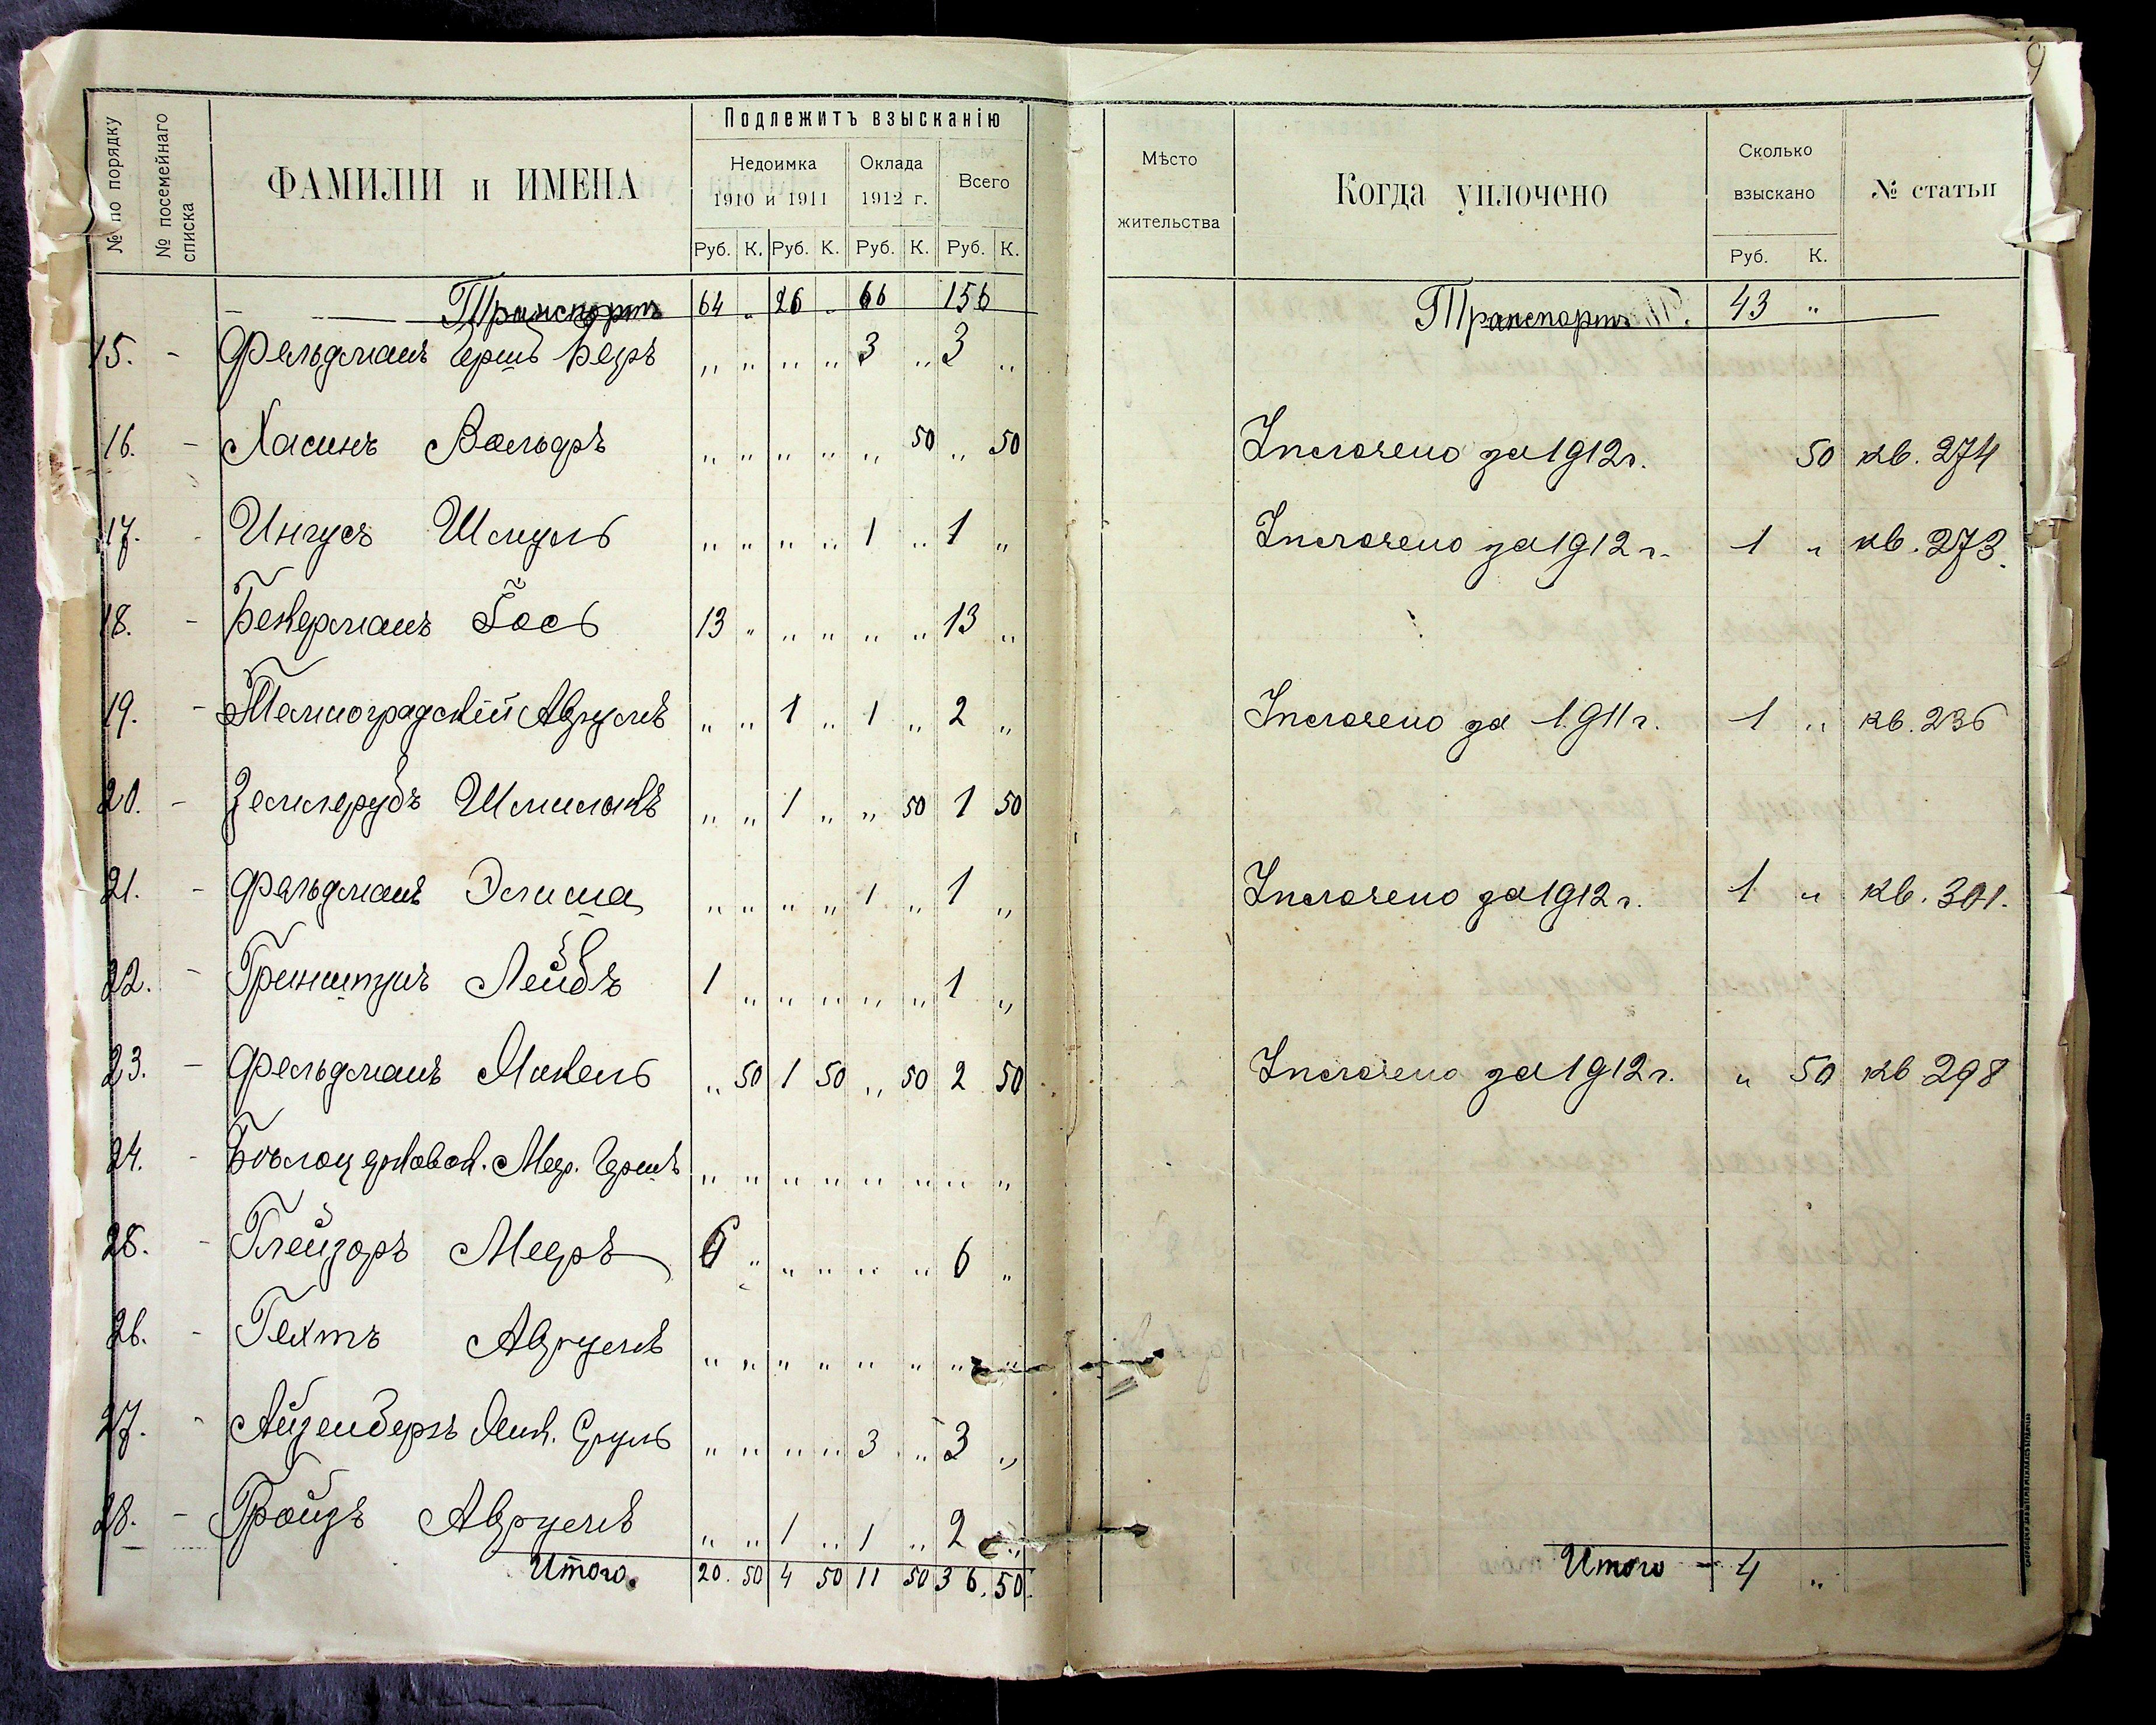 9
№ по порядку
№ посемейнаго списка
ФАМИЛІИ и ИМЕНА
Подлежитъ взысканію
Недоимка
1910 и 1911
Оклада
1912 г.
Всего
Руб. К. Руб. К. Руб. К. Руб. К.
Мѣсто
жительства
Когда уплочено
Сколько
взыскано
Руб. К.
№ статьи
Транспортъ 64 „ 26 „ 66 156
Транспортъ 43 „
15. - Фельдманъ Гершъ Беръ „ „ „ „ 3 „ 3 „
16. - Хасинъ Вольфъ „ „ „ „ „ 50 „ 50 Уплочено за 1912 г. 50 кв. 274
17. - Ингусъ Шмуль „ „ „ „ 1 „ 1 „ Уплочено за 1912 г. 1 „ кв. 273.
18. - Бекерманъ Іось 13 „ „ „ „ „ 13 „
19. - Авгрумъ „ „ 1 „ 1 „ 2 „ Уплочено за 1911 г. 1 „ кв. 236
20. - Землерубъ Шмилокъ „ „ 1 „ „ 50 1 50
21. - Фельдманъ Элиша „ „ „ „ 1 „ 1 „ Уплочено за 1912 г. 1 „ кв. 301.
22. - Гринштунъ Лейбъ 1 „ „ „ „ „ 1 „
23. - Фельдманъ Янкель „ 50 1 50 „ 50 2 50 Уплочено за 1912 г. „ 50 кв 298
24. - Меер. Гершъ „ „ „ „ „ „ „ „
25. - Глейзеръ Мееръ 6 „ „ „ „ „ 6 „
26. - Гехтъ Аврумъ „ „ „ „ „ „ „ „
27. - Айзенбергъ Янк. Сруль „ „ „ „ 3 „ 3 „
28. - Гройзъ Аврумъ „ „ 1 „ 1 „ 2 „
Итого. 20. 50 4 50 11 50 36. 50.
Итого - 4 „